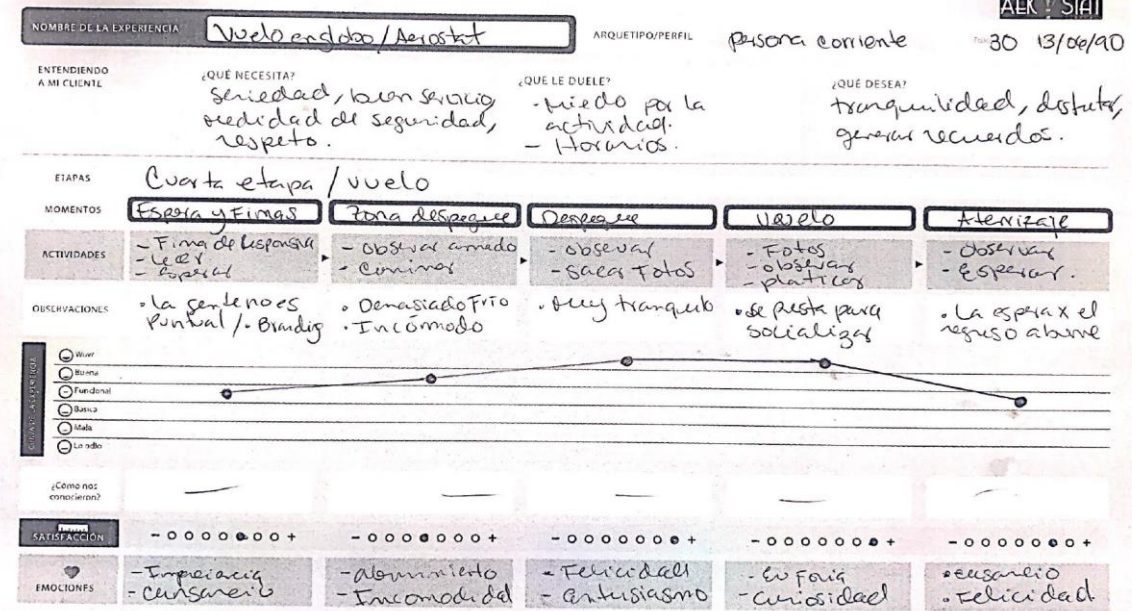 AER : STAT
NOMBRE DE LA EXPERIENCIA Vuelo en globo/Aerostat ARQUETIPO/PERFIL persona corriente 30 13/06/90
ENTENDIENDO A MI CLIENTE
¿QUÉ NECESITA?
Seriedad, buen servicio
medidad de seguridad,
respeto.
¿QUE LE DUELE?
- Miedo por la
actividad.
- Horarios.
¿QUÉ DESEA?
tranquilidad, disfrutar,
generar recuerdos.
ETAPAS Cuarta etapa / vuelo
MOMENTOS Espera y Firmas Zona despegue Despegue Vuelo Aterrizaje
ACTIVIDADES
- Firma de Responsiva
- Leer
- Esperar
- observar armado
- Caminar
- observar
- sacar Fotos
- Fotos
- observar
- platicar
- Observar
- Esperar.
OBSERVACIONES
• la gente no es
puntual / • Branding
• Demasiado Frío
• Incómodo
• Muy tranquilo
• se presta para
socializar
• La espera x el
regreso aburre
Wow!
Buena
Funcional
Básica
Mala
Lo odio
¿Cómo nos
conocieron?
SATISFACCIÓN - + - + - + - + - +
EMOCIONES
- Impaciencia
- Cansancio
- aburrimiento
- Incomodidad
- Felicidad
- entusiasmo
- Euforia
- curiosidad
• cansancio
• Felicidad